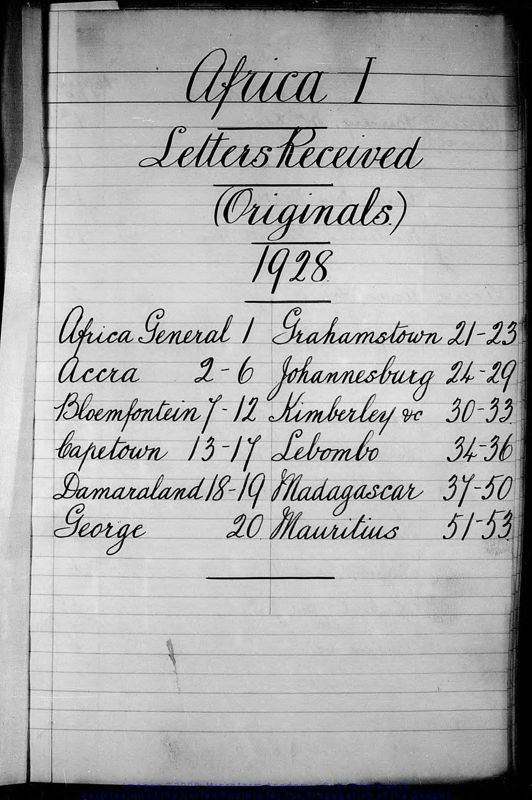 Africa I
Letters Received
(Originals.)
1928
Africa General 1
Accra 2-6
Bloemfontein 7-12
Capetown 13-17
Damaraland 18-19
George 20
Grahamstown 21-23
Johannesburg 24-29
Kimberley &c 30-33
Lebombo 34-36
Madagascar 37-50
Mauritius 51-53